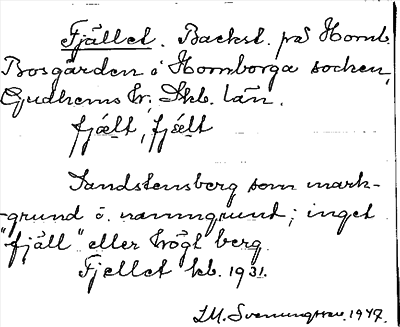 Fjället. Backst. på Hornb.
Bosgården i Hornborga socken,
Gudhems hr; Skb. län.
fjält, fjält
Sandstensberg som mark-
-grund o. namngrund; inget
"fjäll" eller högt berg.
Fjellet kb. 1931.
Svenungsson 1947.